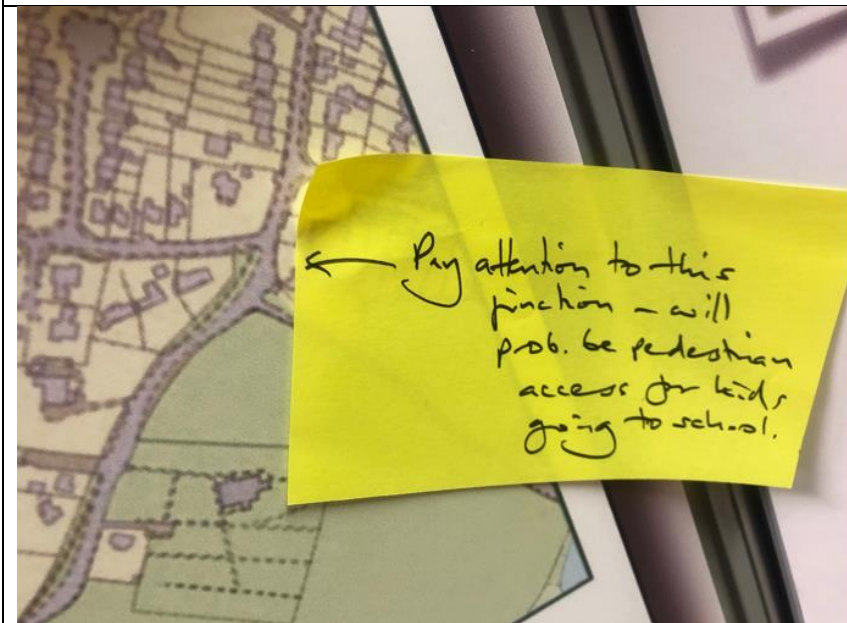 ← Pay attention to this
junction – will
prob. be pedestrian
access for kids
going to school.